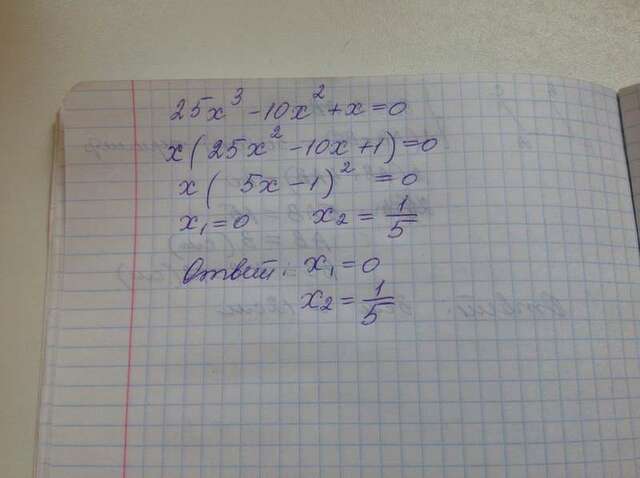 25x³ - 10x² + x = 0
x(25x² - 10x + 1) = 0
x( 5x - 1)² = 0
x₁ = 0 x₂ = 1/5
Ответ: x₁ = 0
x₂ = 1/5